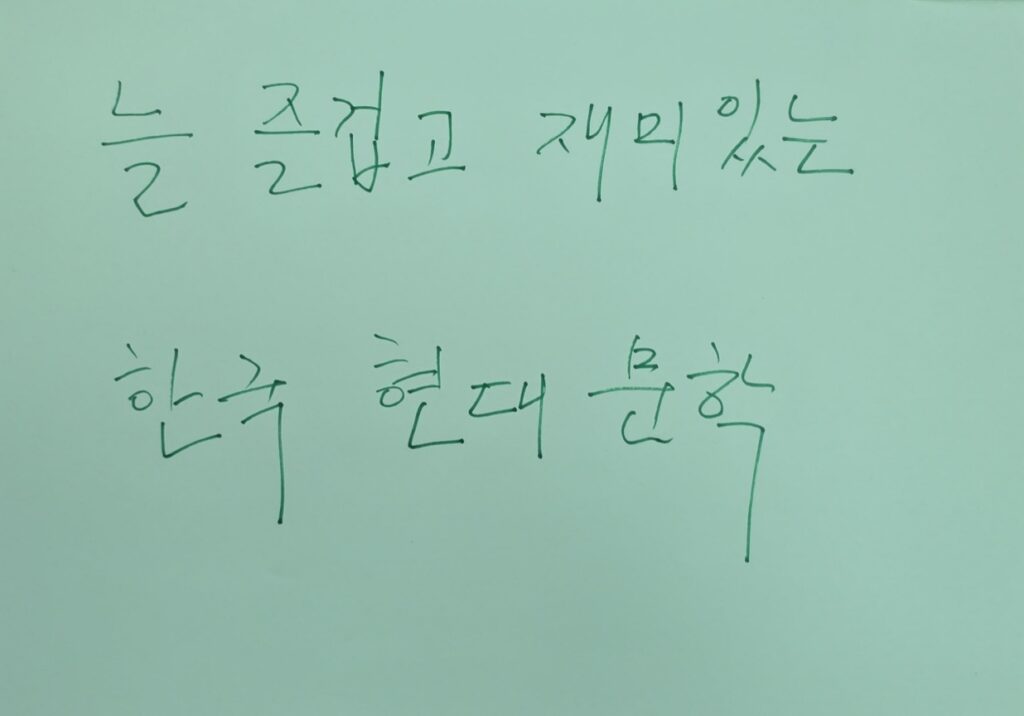 늘 즐겁고 재미있는
한국 현대 문학